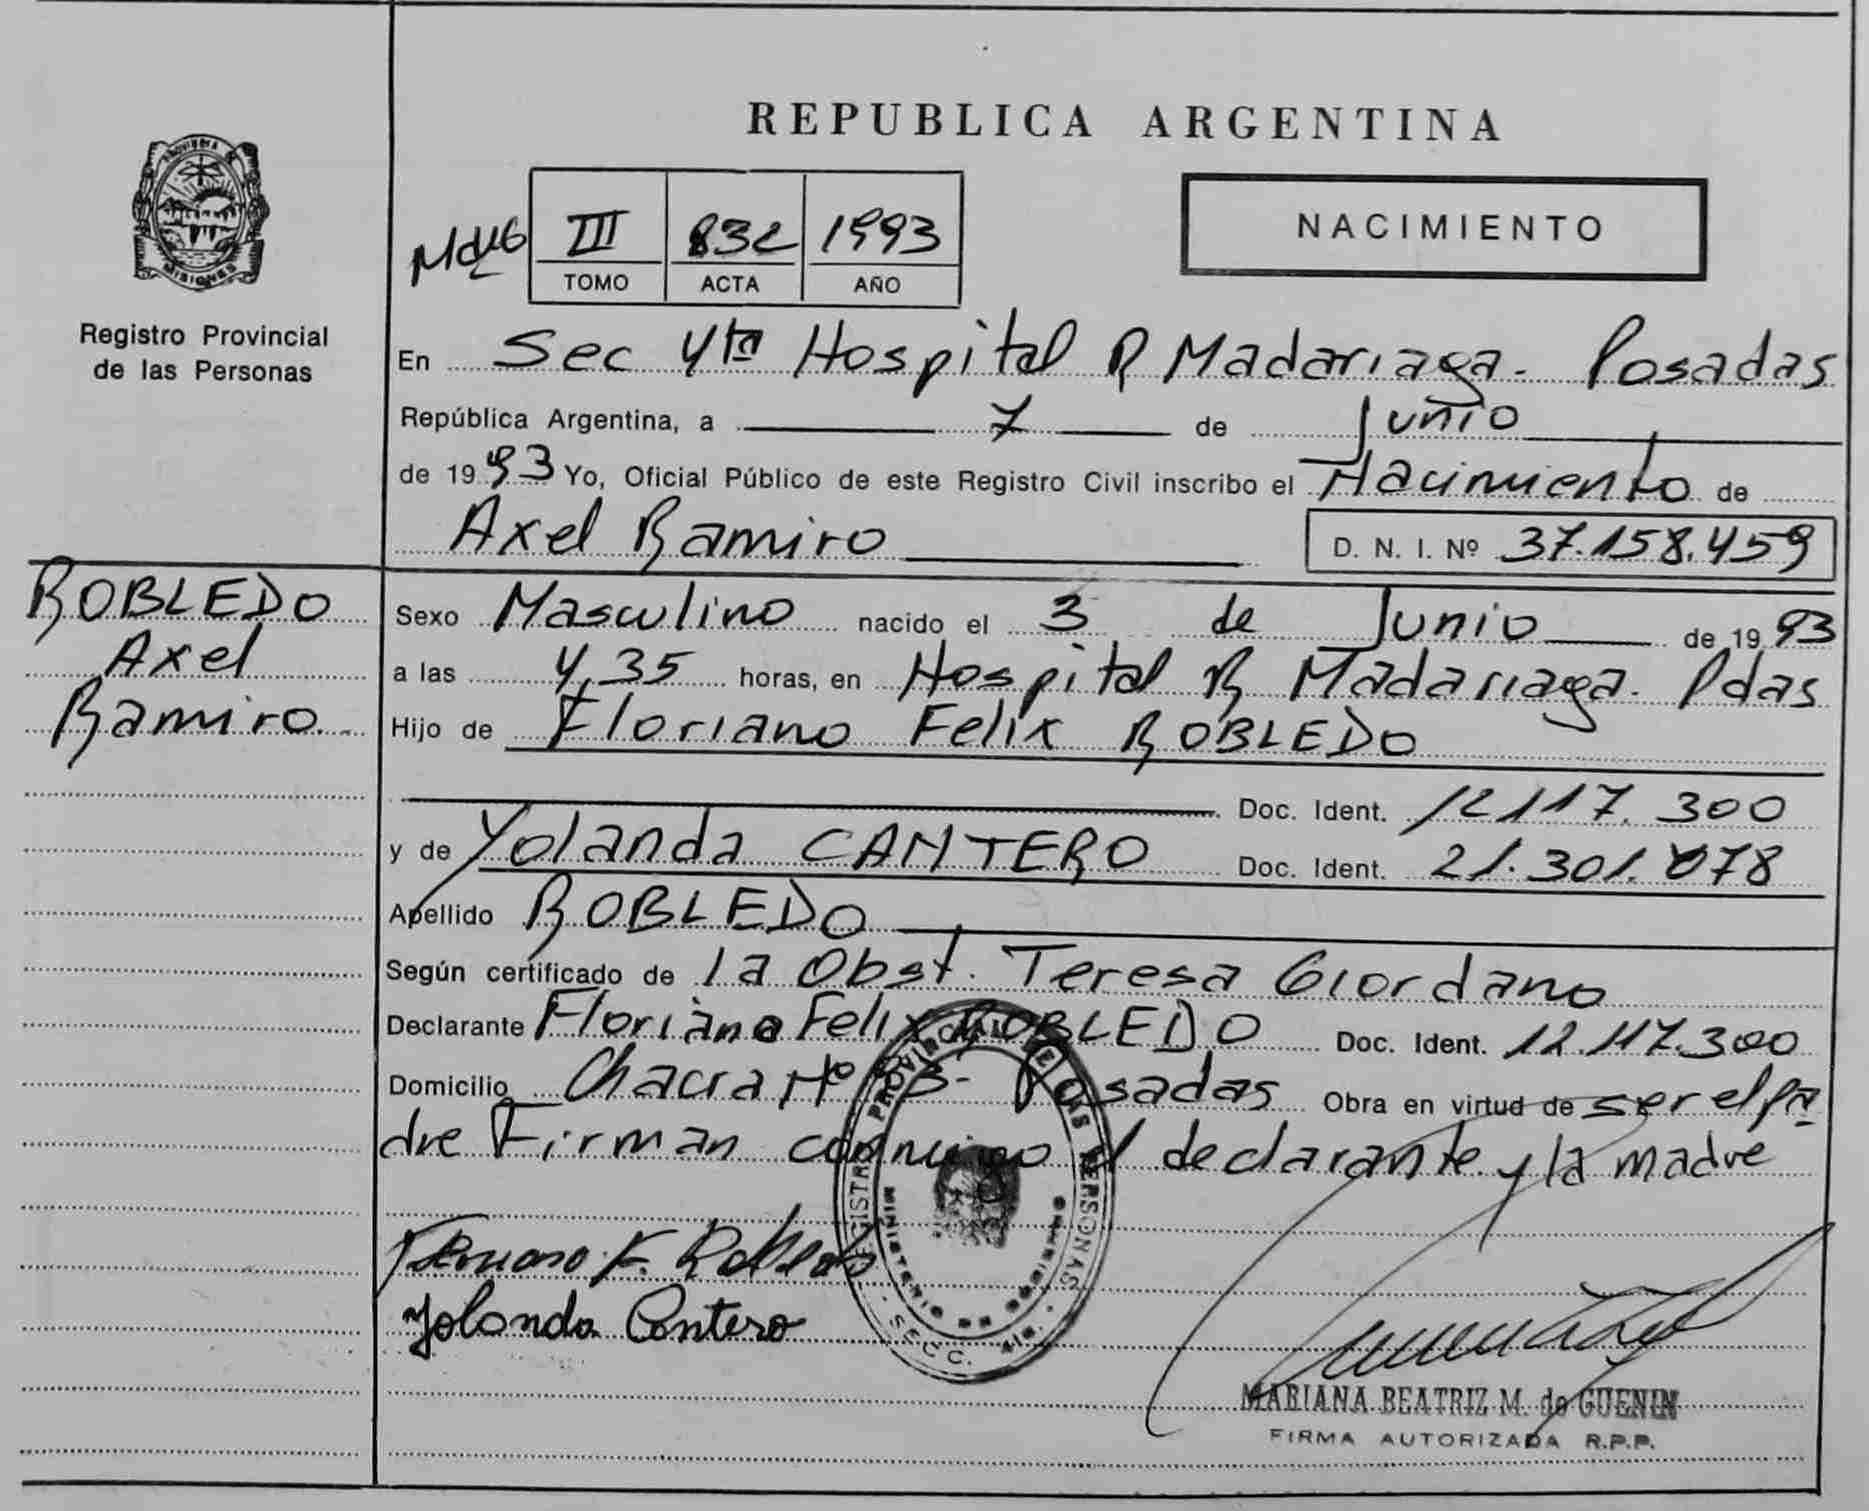 REPUBLICA ARGENTINA
PROVINCIA DE
MISIONES
Registro Provincial
de las Personas
III 832 1993
TOMO ACTA AÑO
NACIMIENTO
En Sec 4ta Hospital R Madariaga - Posadas
República Argentina, a 7 de Junio
de 1993 Yo, Oficial Público de este Registro Civil inscribo el Nacimiento de
Axel Ramiro D. N. I. Nº 37.158.459
ROBLEDO
Axel
Ramiro
Sexo Masculino nacido el 3 de Junio de 1993
a las 4,35 horas, en Hospital R Madariaga. Pdas
Hijo de Floriano Felix ROBLEDO
Doc. Ident. 12117.300
y de Yolanda CANTERO Doc. Ident. 21.301.078
Apellido ROBLEDO
Según certificado de la Obst. Teresa Giordano
Declarante Floriano Felix ROBLEDO Doc. Ident. 12.117.300
Domicilio Chacra Nº Posadas Obra en virtud de ser el pa
dre Firman conmigo el declarante y la madre
REGISTRO PROVINCIAL DE LAS PERSONAS
MINISTERIO DE GOBIERNO
SECC.
F. Robledo
Yolanda Cantero
MARIANA BEATRIZ M. de GUENIN
FIRMA AUTORIZADA R.P.P.